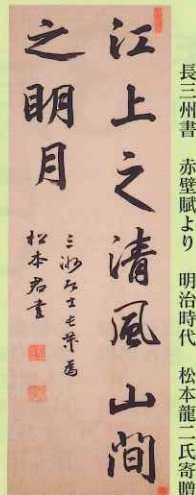 長三州書 赤壁賦より 明治時代 松本龍二氏寄贈
江上之清風山間
之明月
三洲居士長炗爲
松本君書